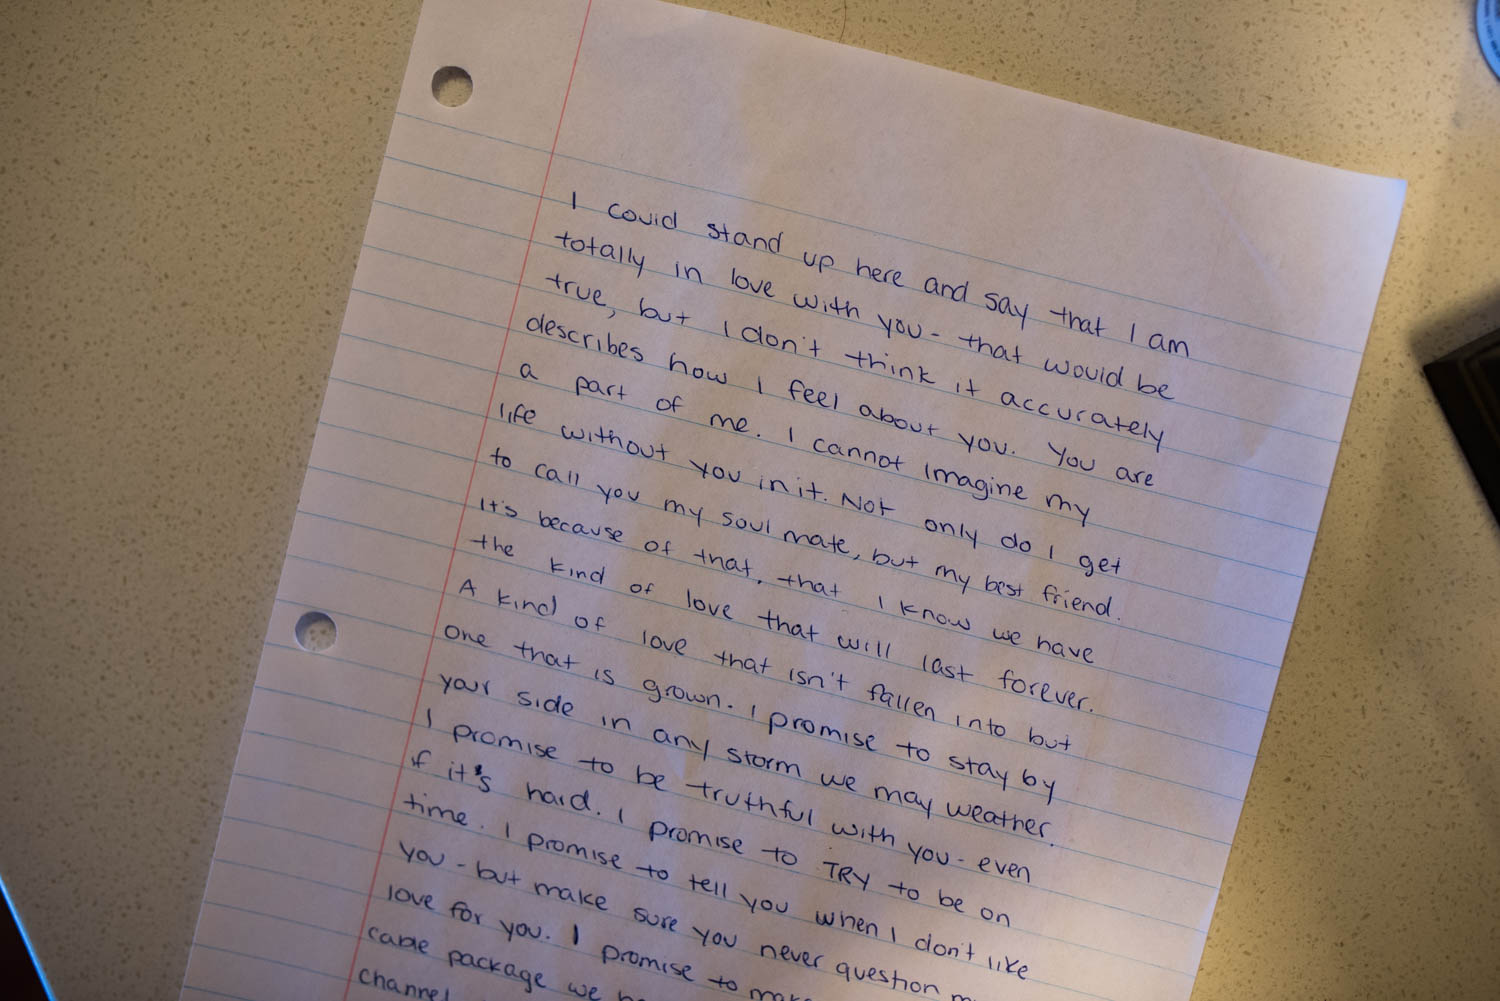 I could stand up here and say that I am
totally in love with you - that would be
true, but I don't think it accurately
describes how I feel about you. You are
a part of me. I cannot imagine my
life without you in it. Not only do I get
to call you my soul mate, but my best friend.
It's because of that, that I know we have
the kind of love that will last forever.
A kind of love that isn't fallen into but
one that is grown. I promise to stay by
your side in any storm we may weather.
I promise to be truthful with you - even
if it's hard. I promise to TRY to be on
time. I promise to tell you when I don't like
you - but make sure you never question
love for you. I promise to
cable package we
channel